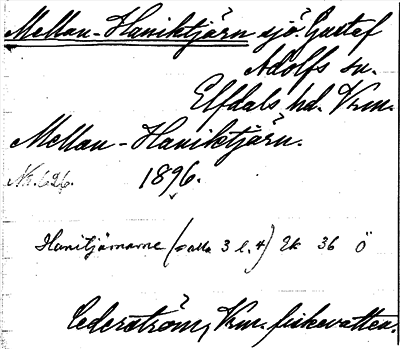 Mellan-Haniktjärn sjö. Gustef
Adolfs sn.
Elfdals hd. Vrm.
Mellan-Haniktjärn.
Nr. 626. 1896.
Hanitjärnarne (= alla 3 l. 4) Ek 36 Ö
Cederström, Vrm. fiskevatten.